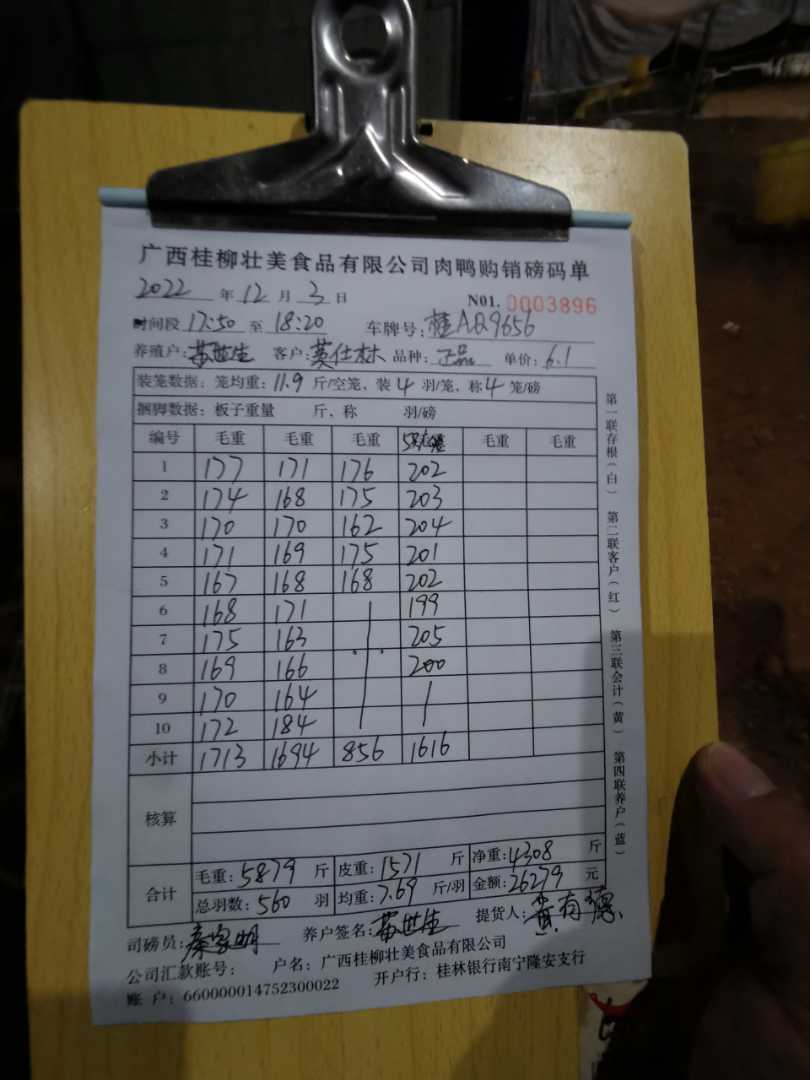 广西桂柳壮美食品有限公司肉鸭购销磅码单
2022 年 12 月 3 日 N01. 0003896
时间段 17:50 至 18:20 车牌号: 桂AQ9656
养殖户: 黄世生 客户: 英仕林 品种: 正品 单价: 6.1
装笼数据: 笼均重: 11.9 斤/空笼、装 4 羽/笼、称 4 笼/磅
捆脚数据: 板子重量 斤、称 羽/磅
编号 毛重 毛重 毛重 毛重 毛重
1 177 171 176 202
2 174 168 175 203
3 170 170 162 204
4 171 169 175 201
5 167 168 168 202
6 168 171 199
7 175 163 205
8 169 166 200
9 170 164
10 172 184
小计 1713 1694 856 1616
核算
合计 毛重: 5879 斤 皮重: 1571 斤 净重: 4308 斤
总羽数: 560 羽 均重: 7.69 斤/羽 金额: 26279 元
司磅员: 秦家明 养户签名: 黄世生 提货人: 黄有德
公司汇款账号: 户名: 广西桂柳壮美食品有限公司
账 户: 660000014752300022 开户行: 桂林银行南宁隆安支行
第一联存根(白) 第二联客户(红) 第三联会计(黄) 第四联养户(蓝)